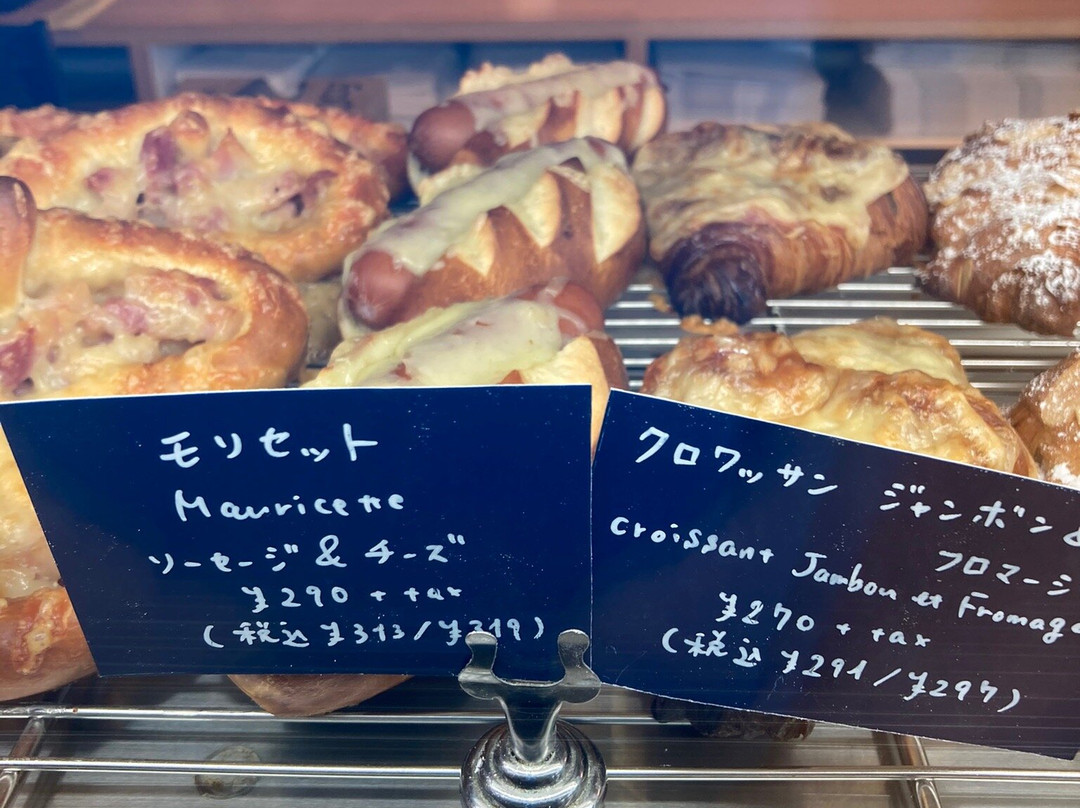 モリセット
Mauricette
ソーセージ & チーズ
¥290 + tax
(税込 ¥313/¥319)
クロワッサン ジャンボン &
フロマージ
croissant Jambon et Fromage
¥270 + tax
(税込 ¥291/¥297)